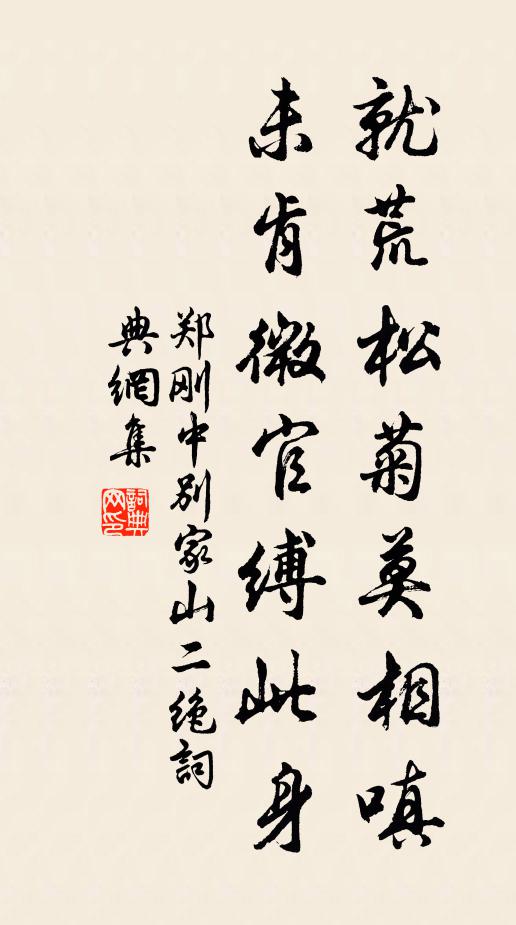 就荒松菊莫相嗔
未肯微官缚此身
郑刚中别家山二绝詞
典網集
詞典
网印